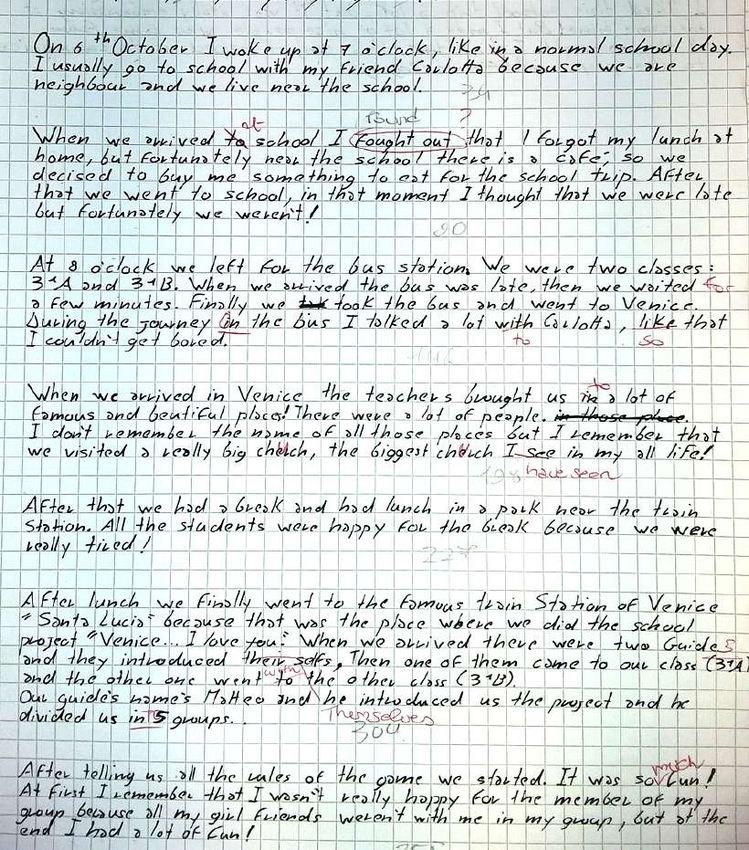 On 6th October I woke up at 7 o'clock, like in a normal school day.
I usually go to school with my friend Carlotta because we are
neighbour and we live near the school.
34
found ?
at
When we arrived to school I fought out that I forgot my lunch at
home, but fortunately near the school there is a cafe, so we
decided to buy me something to eat for the school trip. After
that we went to school, in that moment I thought that we were late
but fortunately we weren't!
90
At 8 o'clock we left for the bus station. We were two classes:
3^A and 3^B. When we arrived the bus was late, then we waited for
a few minutes. Finally we took the bus and went to Venice.
During the journey in the bus I talked a lot with Carlotta, like that
to so
I couldn't get bored.
146
to
When we arrived in Venice the teachers brought us in a lot of
famous and beutiful places! There were a lot of people. in those place.
I don't remember the name of all those places but I remember that
we visited a really big church, the biggest church I see in my all life!
198 have seen
After that we had a break and had lunch in a park near the train
Station. All the students were happy for the break because we were
really tired!
227
After lunch we finally went to the famous train Station of Venice
"Santa Lucia" because that was the place where we did the school
project "Venice... I love you." When we arrived there were two Guides
and they introduced their selfs, Then one of them came to our class (3^A)
with
and the other one went to the other class (3^B).
Our guide's name's Matteo and he introduced us the project and he
divided us in 5 groups..
Themselves
304
much
After telling us all the rules of the game we started. It was so fun!
At first I remember that I wasn't really happy for the member of my
group because all my girl friends weren't with me in my group, but at the
end I had a lot of fun!